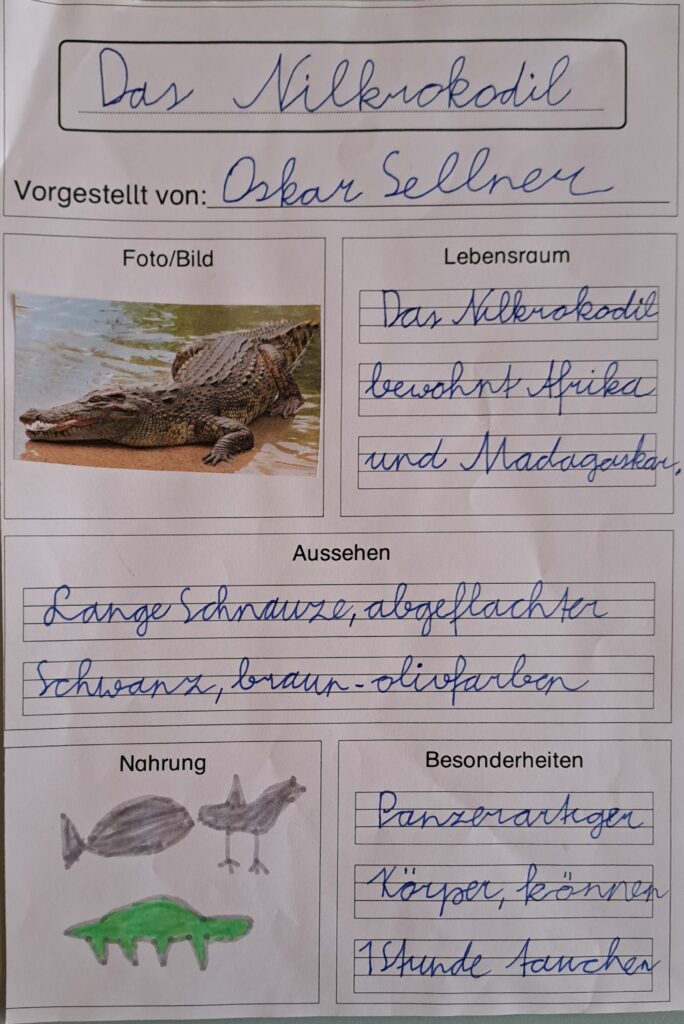 Das Nilkrokodil
Vorgestellt von: Oskar Sellner
Foto/Bild
Lebensraum
Das Nilkrokodil
bewohnt Afrika
und Madagaskar.
Aussehen
Lange Schnauze, abgeflachter
Schwanz, braun-olivfarben
Nahrung
Besonderheiten
Panzerartiger
Körper, können
1 Stunde tauchen